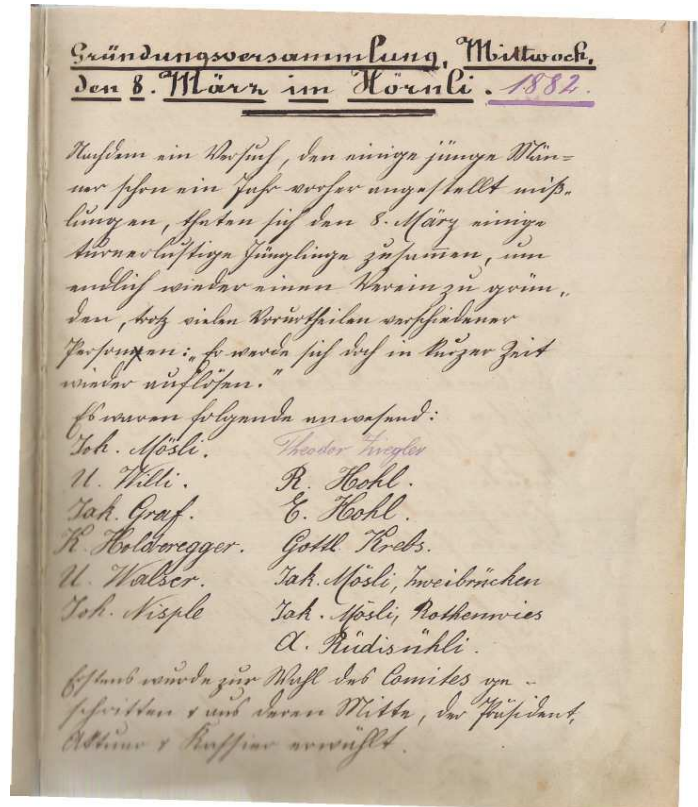 Gründungsversammlung, Mittwoch,
den 8. März im Hörnli. 1882.
Nachdem ein Versuch, den einige junge Män=
ner schon ein Jahr vorher angestellt miß-
lungen, thaten sich den 8. März einige
turnerlustige Jünglinge zusammen, um
endlich wieder einen Verein zu grün-
den, trotz vielen Vorurtheilen verschiedener
Personen: „Er werde sich doch in kurzer Zeit
wieder auflösen."
Es waren folgende anwesend:
Joh. Mösli. Theodor Ziegler
U. Willi. R. Hohl.
Jak. Graf. E. Hohl.
K. Holderegger. Gottl. Krebs.
U. Walser. Jak. Mösli, Zweibrücken
Joh. Nisple Jak. Mösli, Rothenwies
A. Rüdisühli.
Erstens wurde zur Wahl des Comites ge-
schritten & aus deren Mitte, der Präsident,
Aktuar & Kassier erwählt.